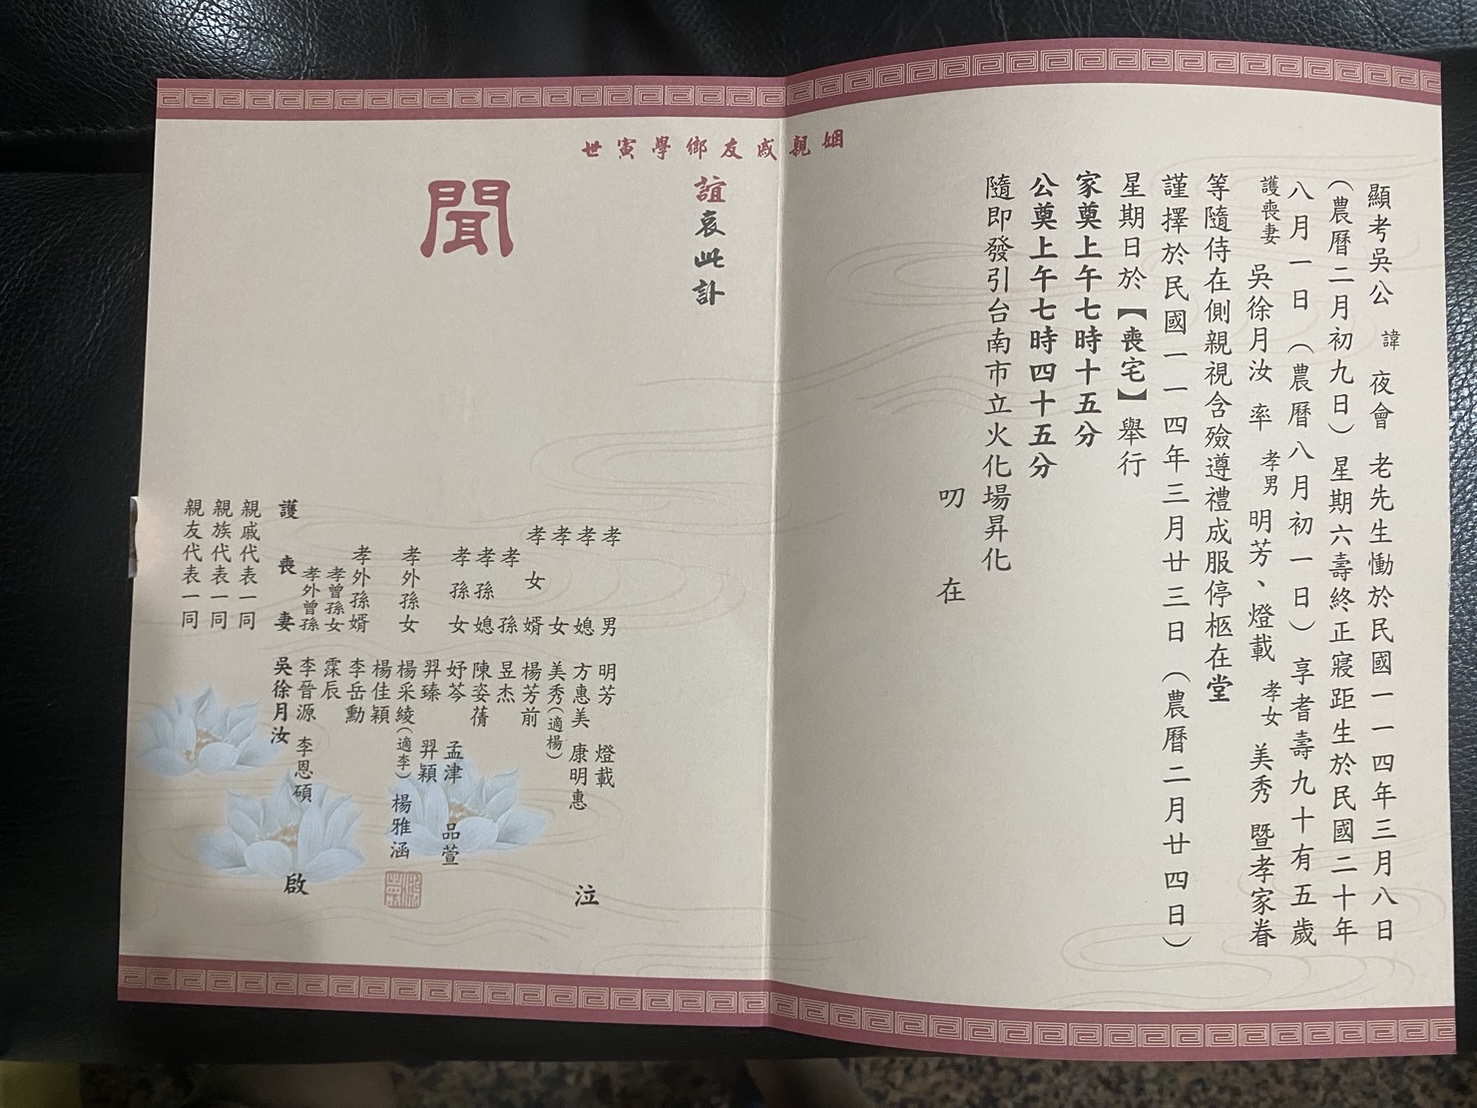 顯考吳公 諱 夜會 老先生慟於民國一一四年三月八日
（農曆二月初九日）星期六壽終正寢距生於民國二十年
八月一日（農曆八月初一日）享耆壽九十有五歲
護喪妻 吳徐月汝 率 孝男 明芳、燈載 孝女 美秀 暨孝家眷
等隨侍在側親視含殮遵禮成服停柩在堂
謹擇於民國一一四年三月廿三日（農曆二月廿四日）
星期日於【喪宅】舉行
家奠上午七時十五分
公奠上午七時四十五分
隨即發引台南市立火化場昇化
叨 在
姻親戚友鄉學寅世
誼哀此訃
聞
孝男 明芳 燈載
孝媳 方惠美 康明惠
孝女 美秀（適楊）
孝女婿 楊芳前
孝孫 昱杰
孝孫媳 陳姿蒨
孝孫女 妤芩 孟津 品萱
羿臻 羿穎
孝外孫女 楊采綾（適李） 楊雅涵
楊佳穎
孝外孫婿 李岳勳
孝曾孫女 霂辰
孝外曾孫 李晉源 李恩碩
泣
護喪妻 吳徐月汝
啟
親戚代表一同
親族代表一同
親友代表一同